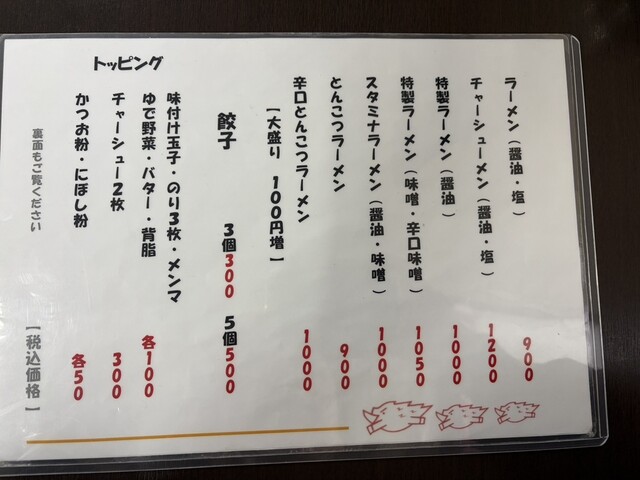 ラーメン（醤油・塩） 900
チャーシューメン（醤油・塩） 1200
特製ラーメン（醤油） 1000
特製ラーメン（味噌・辛口味噌） 1050
スタミナラーメン（醤油・味噌） 1000
とんこつラーメン 900
辛口とんこつラーメン 1000
【大盛り 100円増】
餃子 3個300 5個500
トッピング
味付け玉子・のり3枚・メンマ
ゆで野菜・バター・背脂 各100
チャーシュー2枚 300
かつお粉・にぼし粉 各50
裏面もご覧ください
【税込価格】